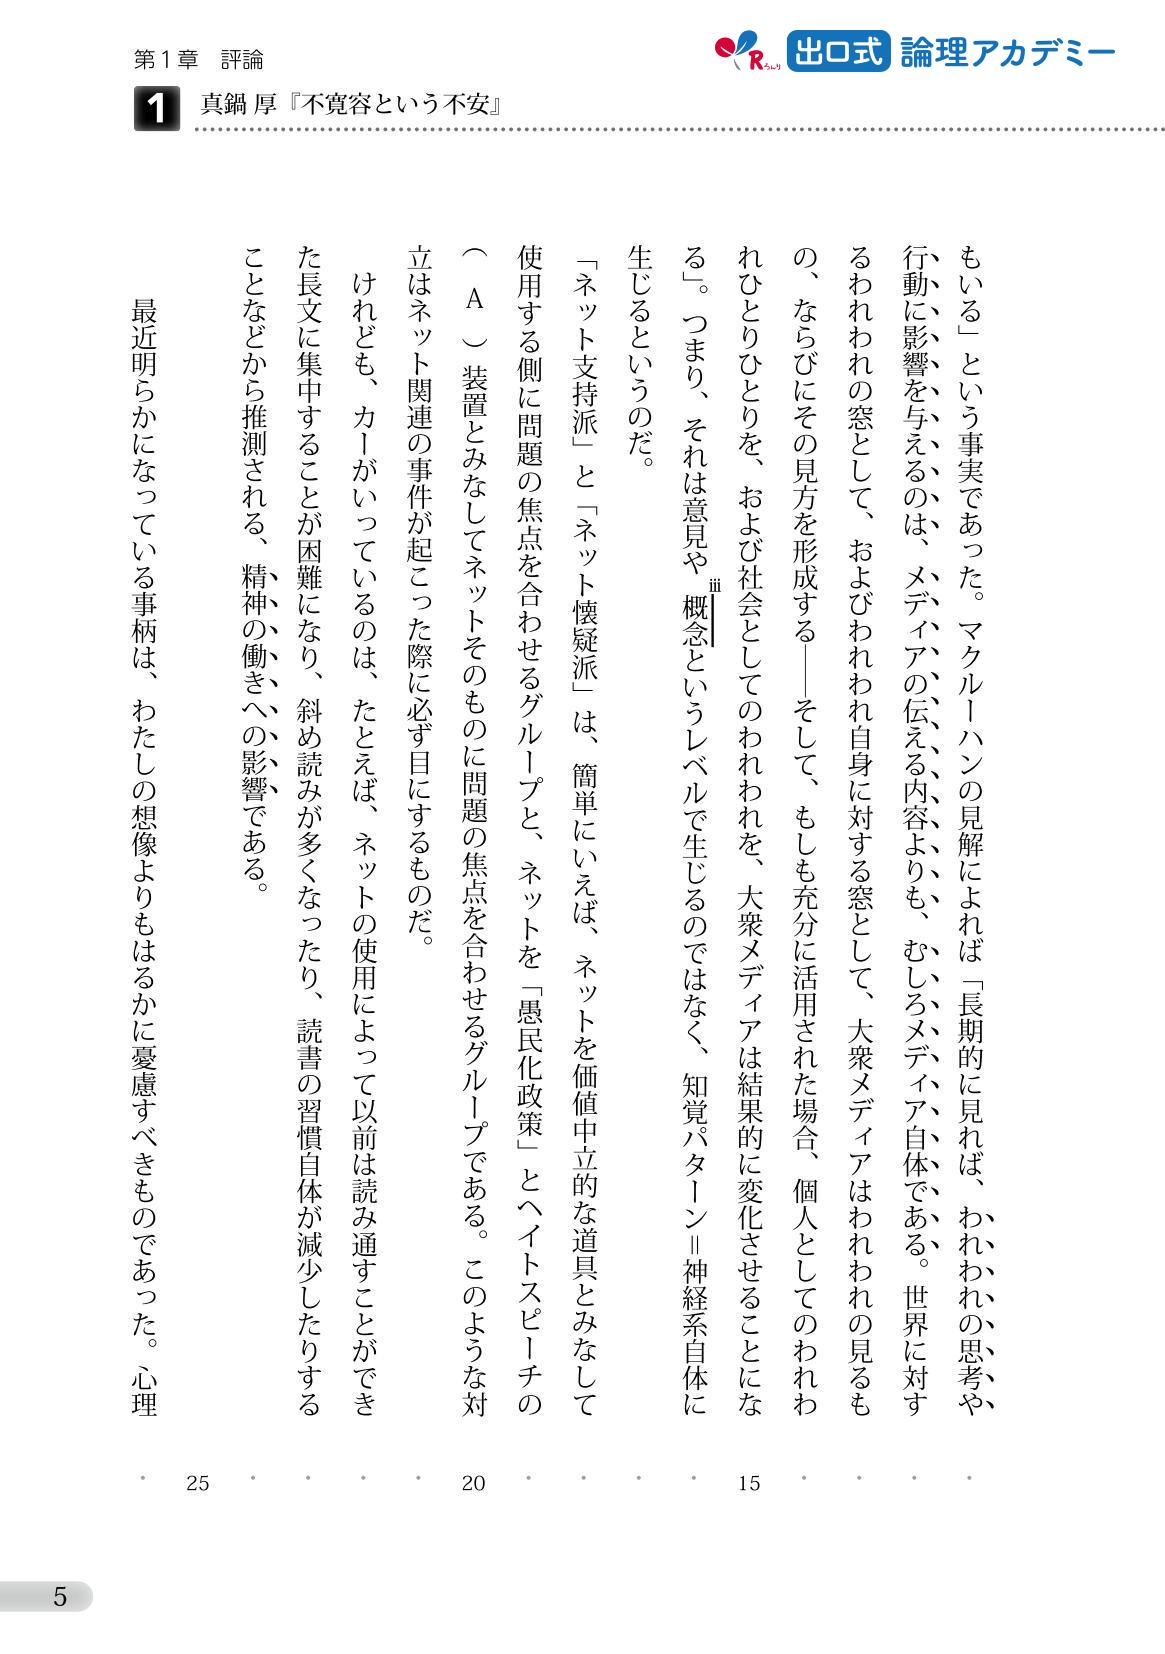 第1章　評論
Rろんり 出口式 論理アカデミー
1 真鍋 厚『不寛容という不安』
もいる」という事実であった。マクルーハンの見解によれば「長期的に見れば、われわれの思考や
行動に影響を与えるのは、メディアの伝える内容よりも、むしろメディア自体である。世界に対す
るわれわれの窓として、およびわれわれ自身に対する窓として、大衆メディアはわれわれの見るも
の、ならびにその見方を形成する――そして、もしも充分に活用された場合、個人としてのわれわ
れひとりひとりを、および社会としてのわれわれを、大衆メディアは結果的に変化させることにな
る」。つまり、それは意見やⅲ概念というレベルで生じるのではなく、知覚パターン＝神経系自体に
生じるというのだ。
「ネット支持派」と「ネット懐疑派」は、簡単にいえば、ネットを価値中立的な道具とみなして
使用する側に問題の焦点を合わせるグループと、ネットを「愚民化政策」とヘイトスピーチの
（　A　）装置とみなしてネットそのものに問題の焦点を合わせるグループである。このような対
立はネット関連の事件が起こった際に必ず目にするものだ。
けれども、カーがいっているのは、たとえば、ネットの使用によって以前は読み通すことができ
た長文に集中することが困難になり、斜め読みが多くなったり、読書の習慣自体が減少したりする
ことなどから推測される、精神の働きへの影響である。
最近明らかになっている事柄は、わたしの想像よりもはるかに憂慮すべきものであった。心理
15
20
25
5